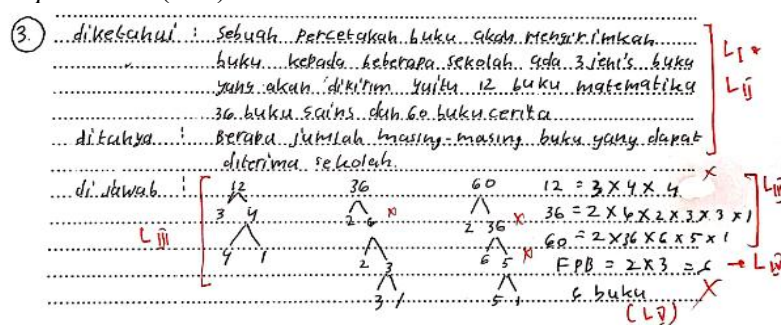 3. diketahui : Sebuah percetakan buku akan mengirimkan
buku kepada beberapa sekolah ada 3 jenis buku
yang akan dikirim yaitu 12 buku matematika
36 buku sains dan 60 buku cerita
ditanya : Berapa jumlah masing-masing buku yang dapat
diterima sekolah.
dijawab : 12 36 60 12 = 3 x 4 x 4
3 4 2 6 2 36 36 = 2 x 6 x 2 x 3 x 3 x 1
4 1 2 3 6 5 60 = 2 x 36 x 6 x 5 x 1
3 1 5 1 FPB = 2 x 3 = 6
6 buku
(L V)
L I
L II
L III
L III
L IV